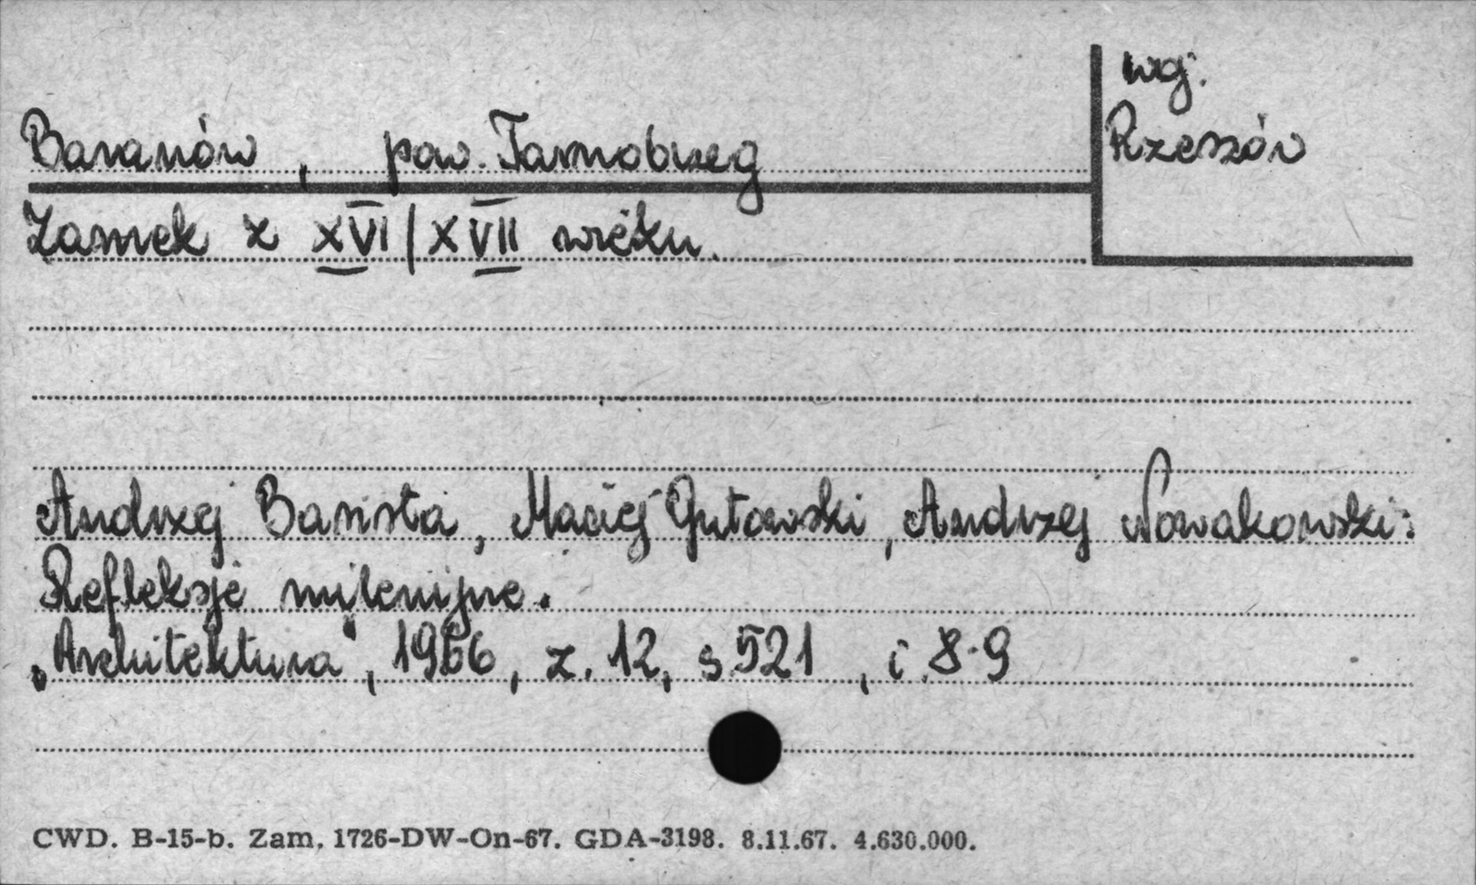 woj.
Rzeszów
Baranów, pow. Tarnobrzeg
Zamek z XVI/XVII wieku.
Andrzej Basista, Maciej Gutowski, Andrzej Nowakowski:
Refleksje milenijne.
„Architektura", 1966, z. 12, s. 521, i. 8-9
CWD. B-15-b. Zam. 1726-DW-On-67. GDA-3198. 8.11.67. 4.630.000.